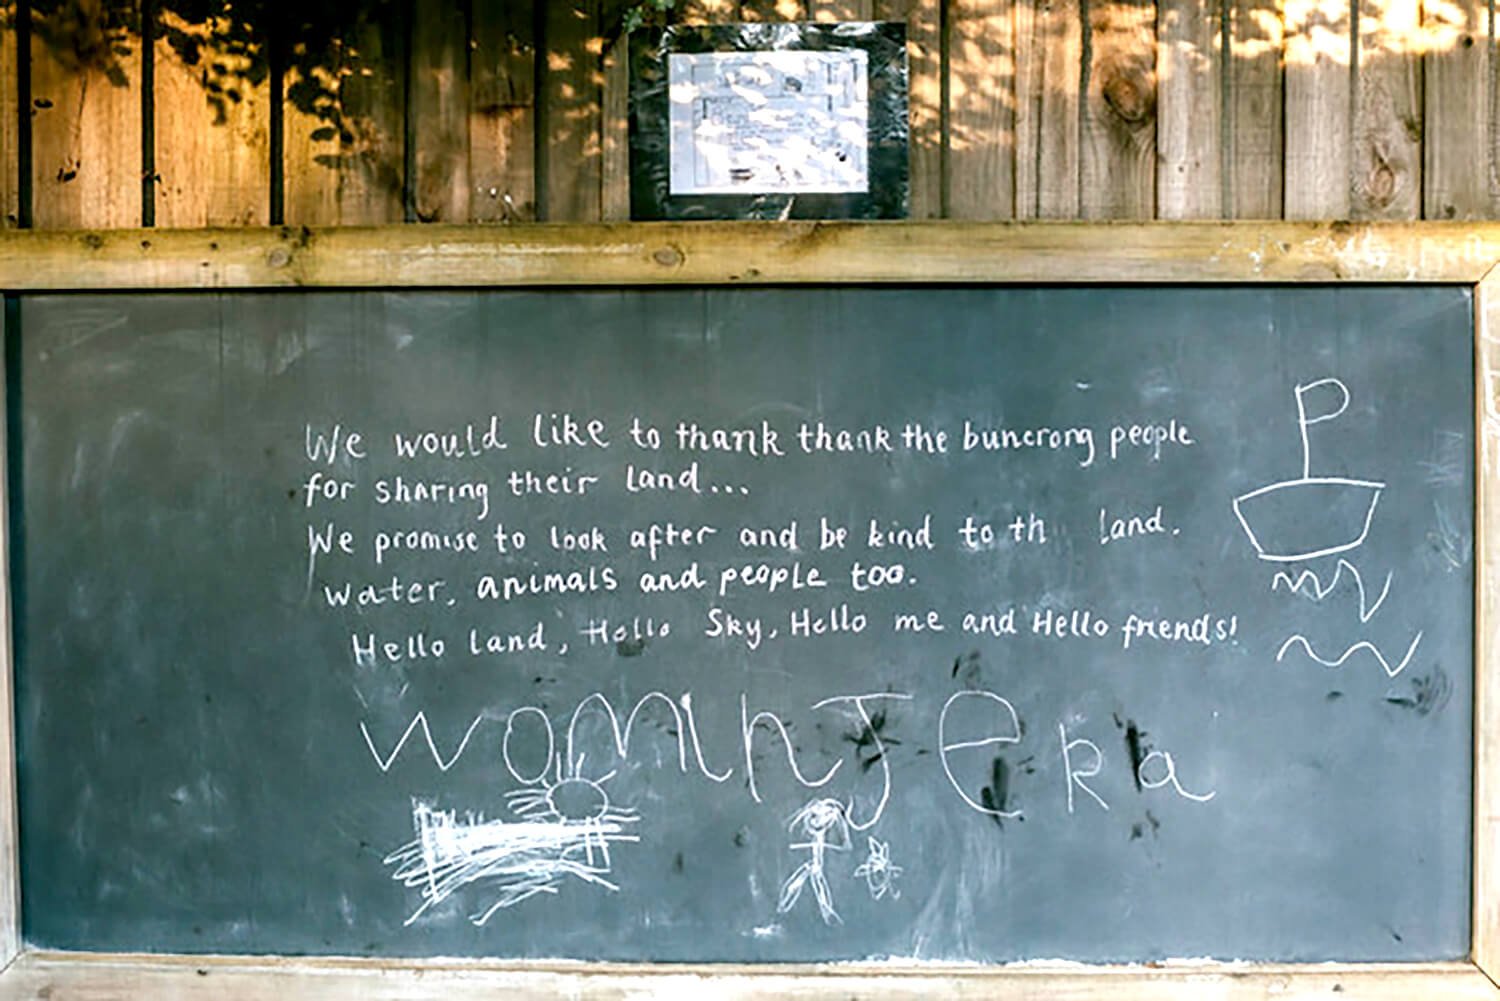 We would like to thank thank the buncrong people
for sharing their land...
We promise to look after and be kind to th land.
water, animals and people too.
Hello land, Hello Sky, Hello me and Hello friends!
WominJeka
P